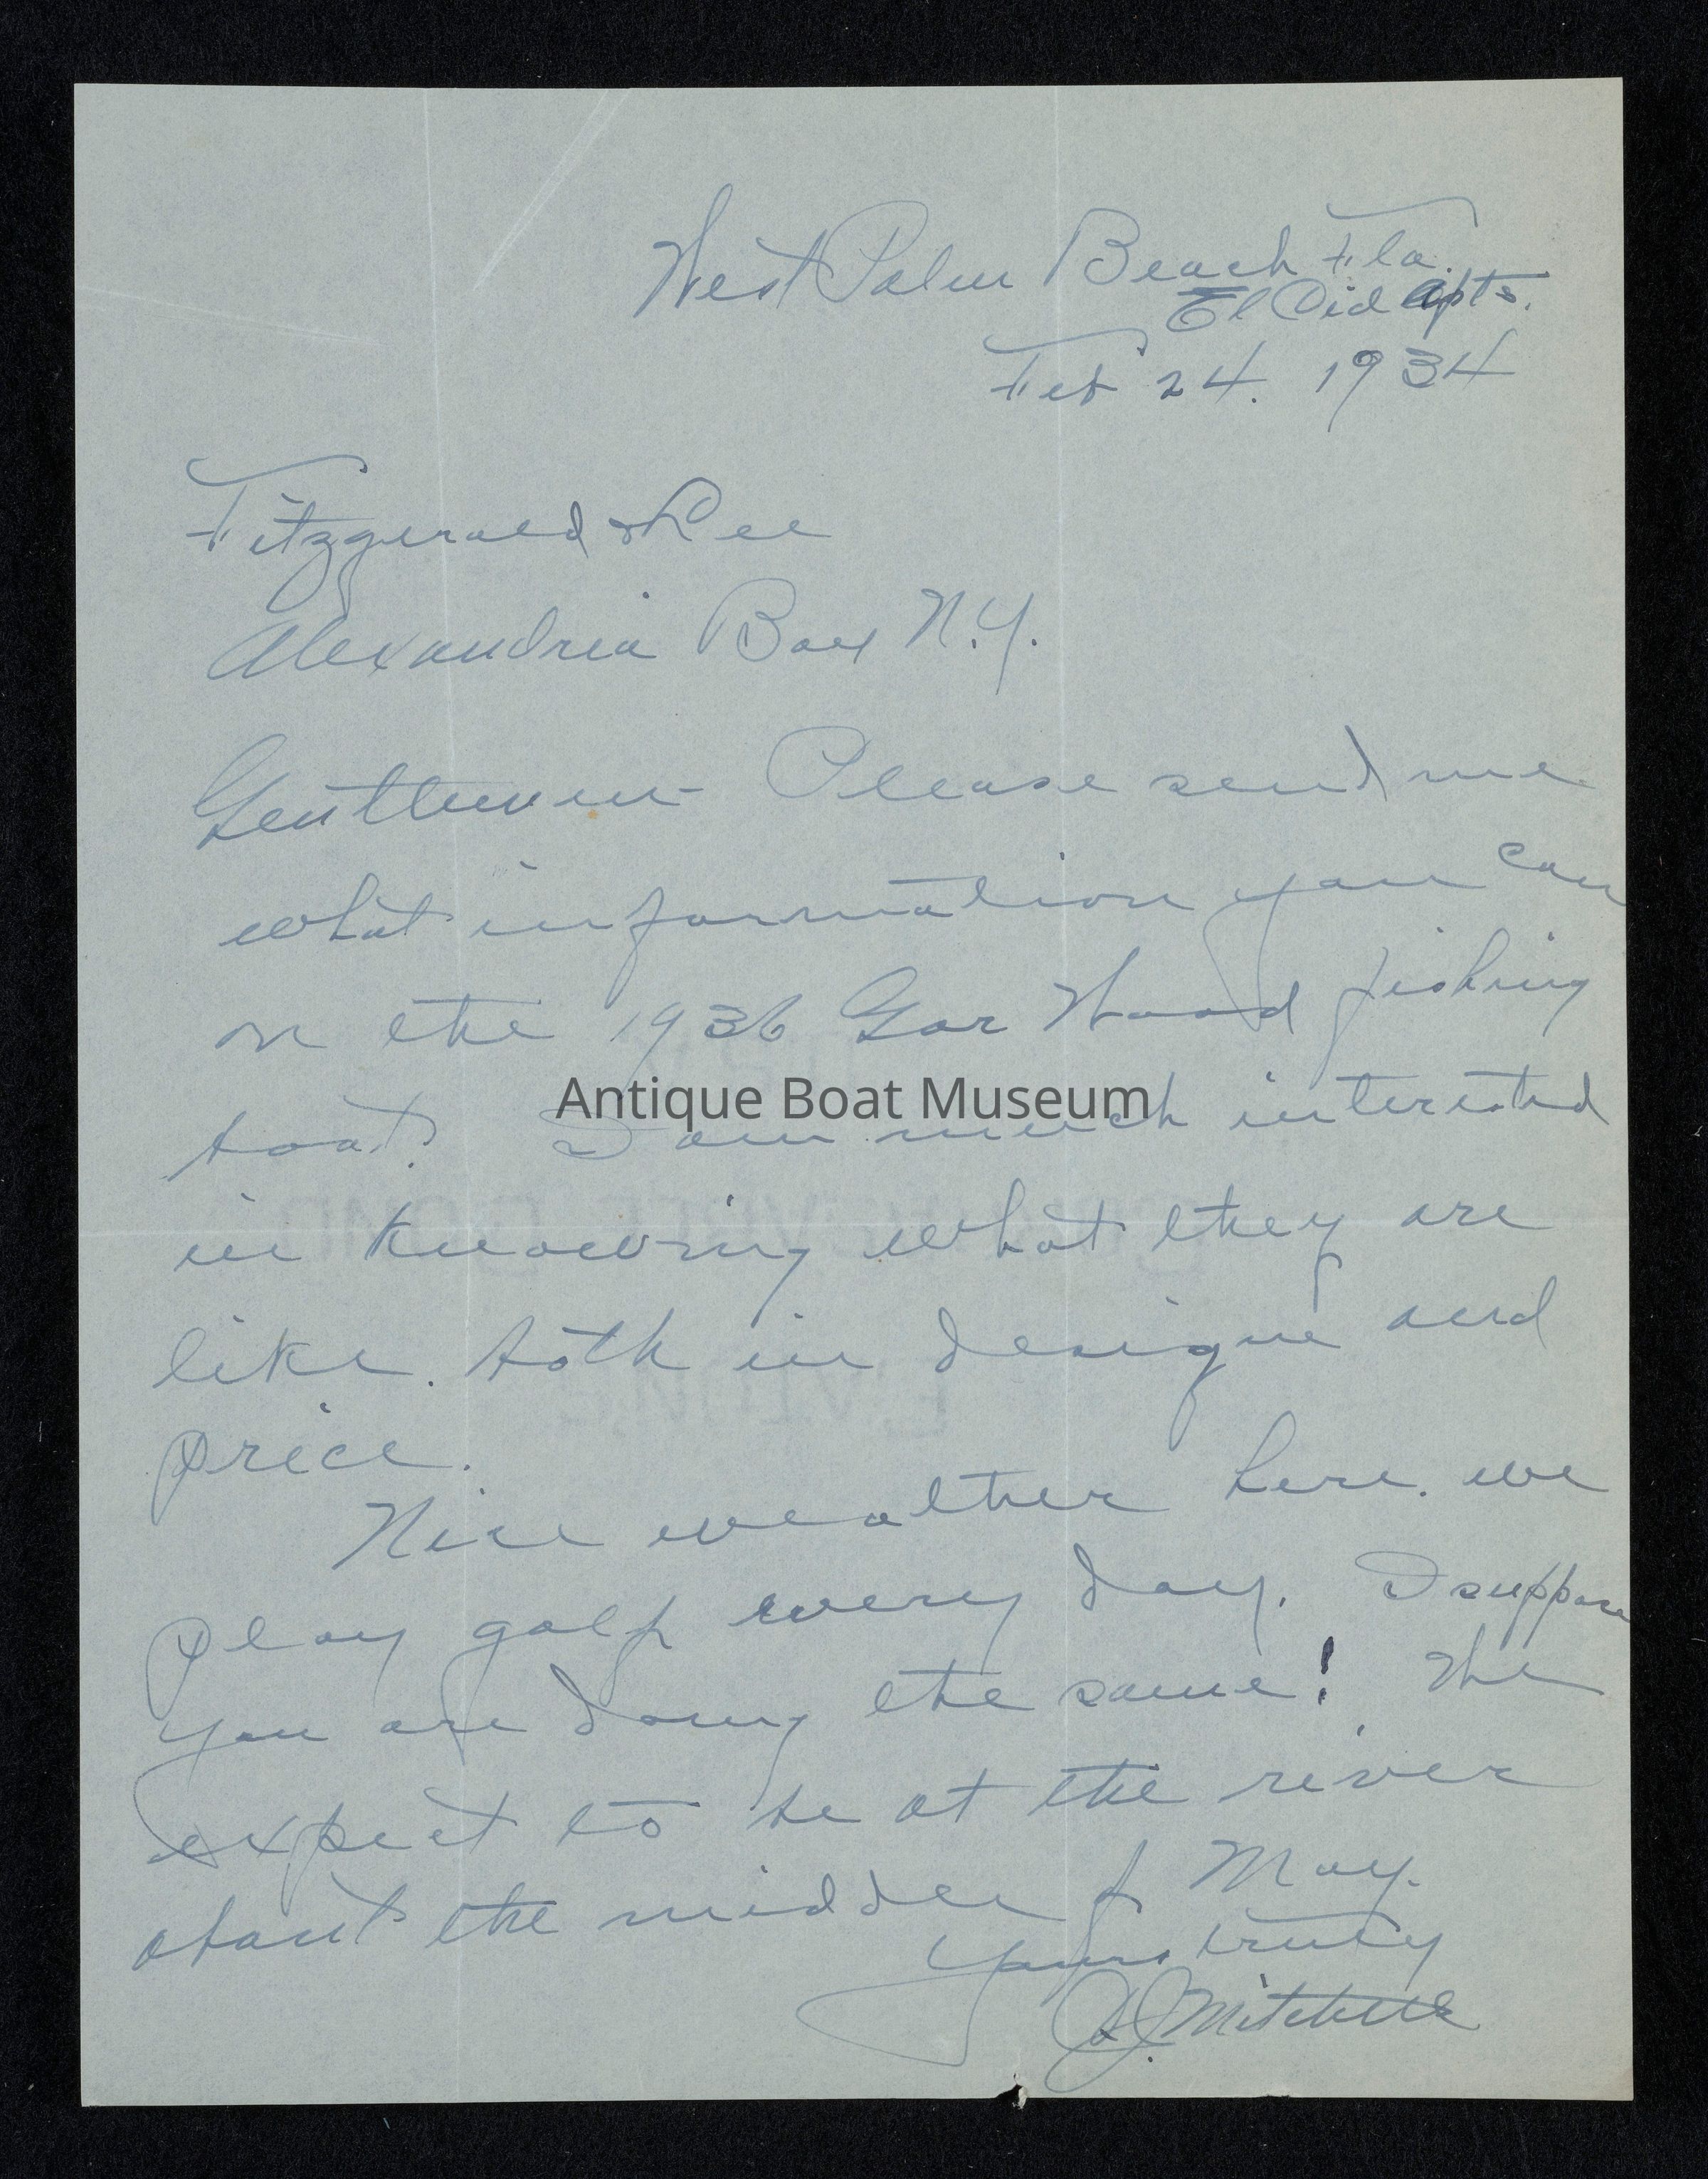 West Palm Beach Fla.
El Cid Apts.
Feb 24. 1934
Fitzgerald & Lee
Alexandria Bay N.Y.
Gentlemen - Please send me
what information you can
on the 1936 Gar Wood fishing
boat? I am much interested
Antique Boat Museum
in knowing what they are
like. both in designe and
price.
Nice weather here. we
play golf every day. I suppose
you are doing the same! We
expect to be at the river
about the middle of May.
Yours truly
J. Mitchell